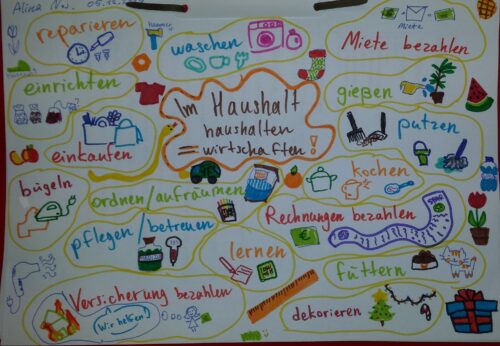 reparieren
waschen
Miete
Miete bezahlen
einrichten
Im Haushalt
haushalten
= wirtschaften!
gießen
putzen
einkaufen
kochen
bügeln
ordnen/aufräumen
Rechnungen bezahlen
pflegen/betreuen
lernen
füttern
Versicherung bezahlen
Wir helfen!
dekorieren